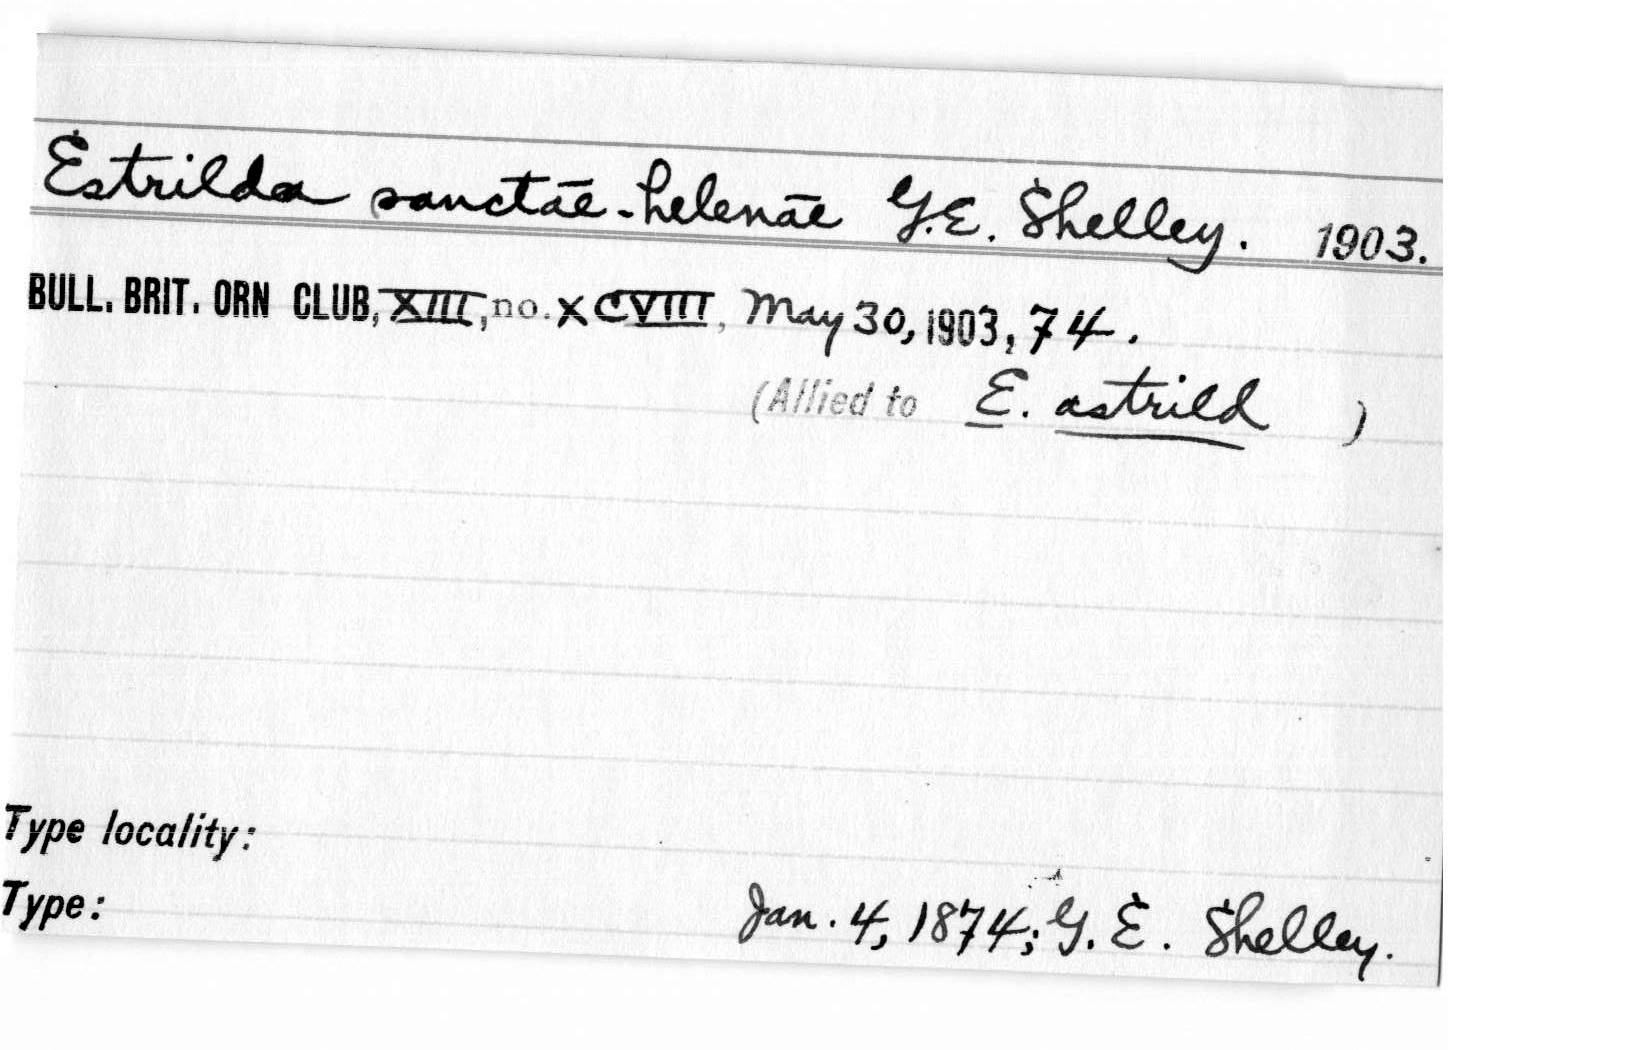 Estrilda sanctae-helenae G.E. Shelley. 1903.
BULL. BRIT. ORN CLUB, XIII, no. XCVIII, May 30, 1903, 74.
(Allied to E. astrild )
Type locality:
Type: Jan. 4, 1874; G. E. Shelley.